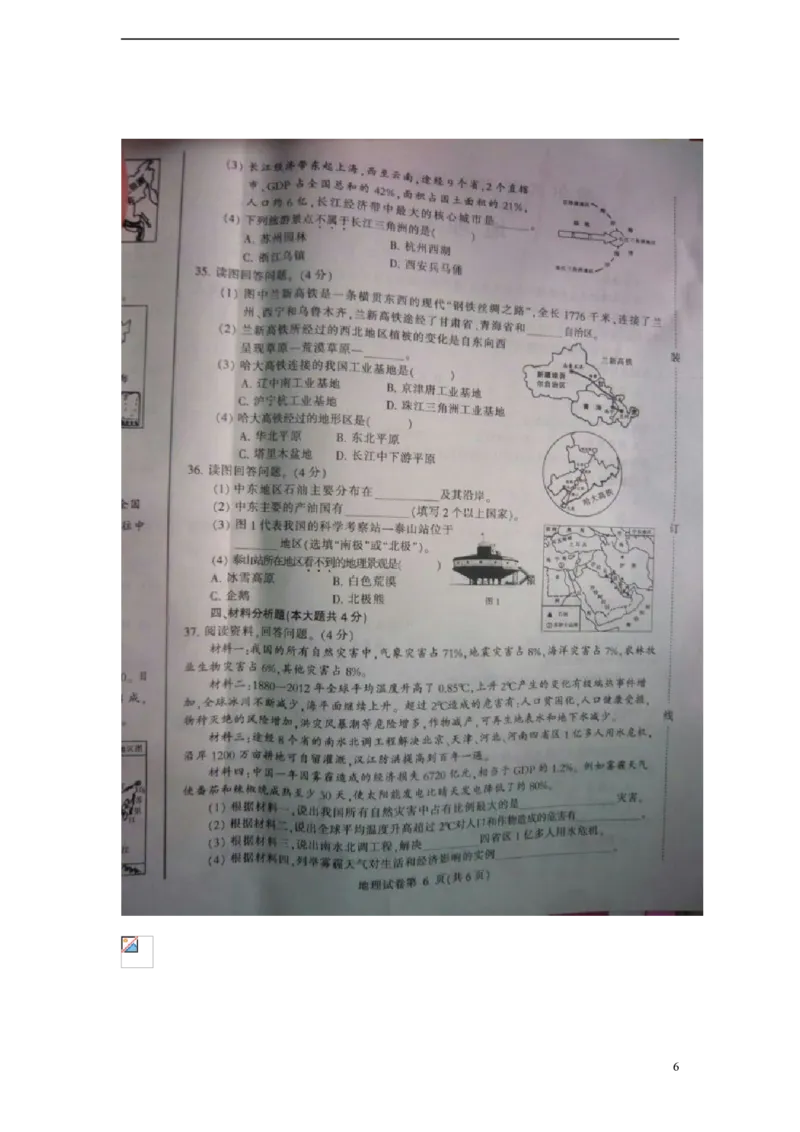 (3) 长江经济带东起上海,西至云南,途经9个省,2个直辖
市、GDP占全国总和的42%,面积占国土面积的21%,
人口约6亿,长江经济带中最大的核心城市是______。
(4) 下列旅游景点不属于长江三角洲的是( )
A. 苏州园林 B. 杭州西湖
C. 浙江乌镇 D. 西安兵马俑
35. 读图回答问题。(4分)
(1) 图中兰新高铁是一条横贯东西的现代“钢铁丝绸之路”,全长1776千米,连接了兰
州、西宁和乌鲁木齐,兰新高铁途经了甘肃省、青海省和______自治区。
(2) 兰新高铁所经过的西北地区植被的变化是自东向西
呈现草原—荒漠草原—______。
(3) 哈大高铁连接的我国工业基地是( )
A. 辽中南工业基地 B. 京津唐工业基地
C. 沪宁杭工业基地 D. 珠江三角洲工业基地
(4) 哈大高铁经过的地形区是( )
A. 华北平原 B. 东北平原
C. 塔里木盆地 D. 长江中下游平原
兰新高铁
新疆维吾
尔自治区
青海
哈大高铁
36. 读图回答问题。(4分)
(1) 中东地区石油主要分布在______及其沿岸。
(2) 中东主要的产油国有______(填写2个以上国家)。
(3) 图1代表我国的科学考察站—泰山站位于
______地区(选填“南极”或“北极”)。
(4) 泰山站所在地区看不到的地理景观是( )
A. 冰雪高原 B. 白色荒漠
C. 企鹅 D. 北极熊
图1
四、材料分析题(本大题共4分)
37. 阅读资料,回答问题。(4分)
材料一:我国的所有自然灾害中,气象灾害占71%,地震灾害占8%,海洋灾害占7%,农林牧
业生物灾害占6%,其他灾害占8%。
材料二:1880—2012年全球平均温度升高了0.85℃,上升2℃产生的变化有极端热事件增
加,全球冰川不断减少,海平面继续上升。超过2℃造成的危害有:人口贫困化,人口健康受损,
物种灭绝的风险增加,洪灾风暴潮等危险增多,作物减产,可再生地表水和地下水减少。
材料三:途经8个省的南水北调工程解决北京、天津、河北、河南四省区1亿多人用水危机,
沿岸1200万亩耕地可自留灌溉,汉江防洪提高到百年一遇。
材料四:中国一年因雾霾造成的经济损失6720亿元,相当于GDP的1.2%。例如雾霾天气
使番茄和辣椒晚成熟至少30天,使太阳能发电比晴天发电降低了约80%。
(1) 根据材料一,说出我国所有自然灾害中占有比例最大的是______灾害。
(2) 根据材料二,说出全球平均温度升高超过2℃对人口和作物造成的危害有______。
(3) 根据材料三,说出南水北调工程,解决______四省区1亿多人用水危机。
(4) 根据材料四,列举雾霾天气对生活和经济影响的实例______。
地理试卷第 6 页(共6页)
装
订
线
6